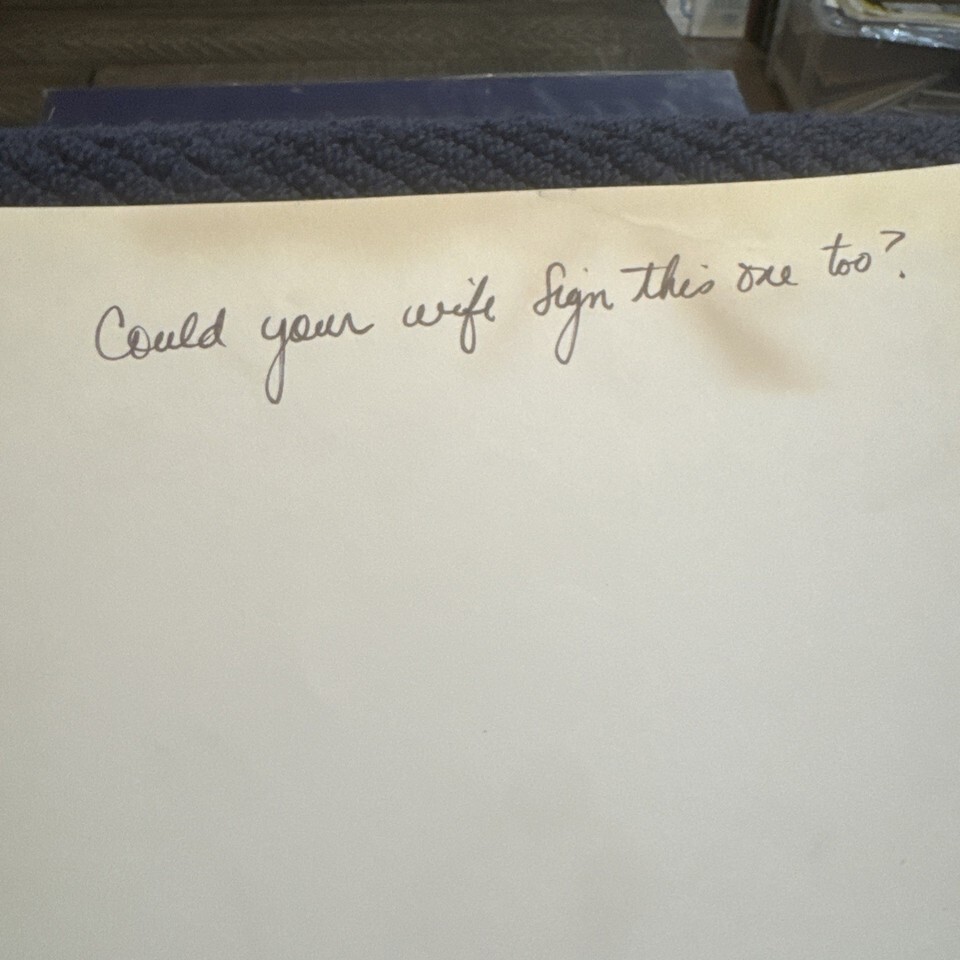 Could your wife sign this one too?